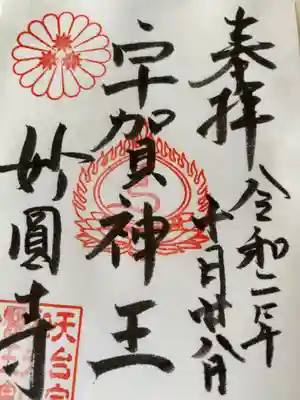 奉拝
令和二年
十月廿八日
宇賀神王
妙圓寺
天台宗